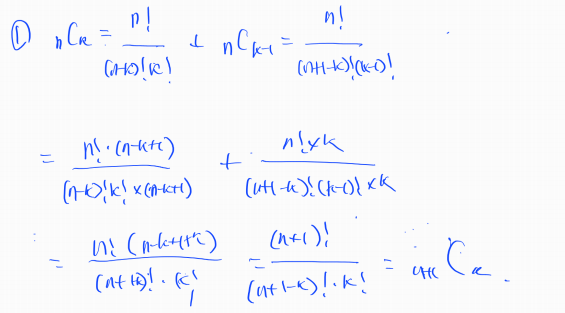 ① nCk = n! / (n-k)!k! + nCk-1 = n! / (n+1-k)!(k-1)!
= n!·(n-k+1) / (n-k)!k!×(n-k+1) + n!×k / (n+1-k)!(k-1)!×k
= n!(n-k+1+k) / (n+1-k)!·k! = (n+1)! / (n+1-k)!·k! = n+1Ck.